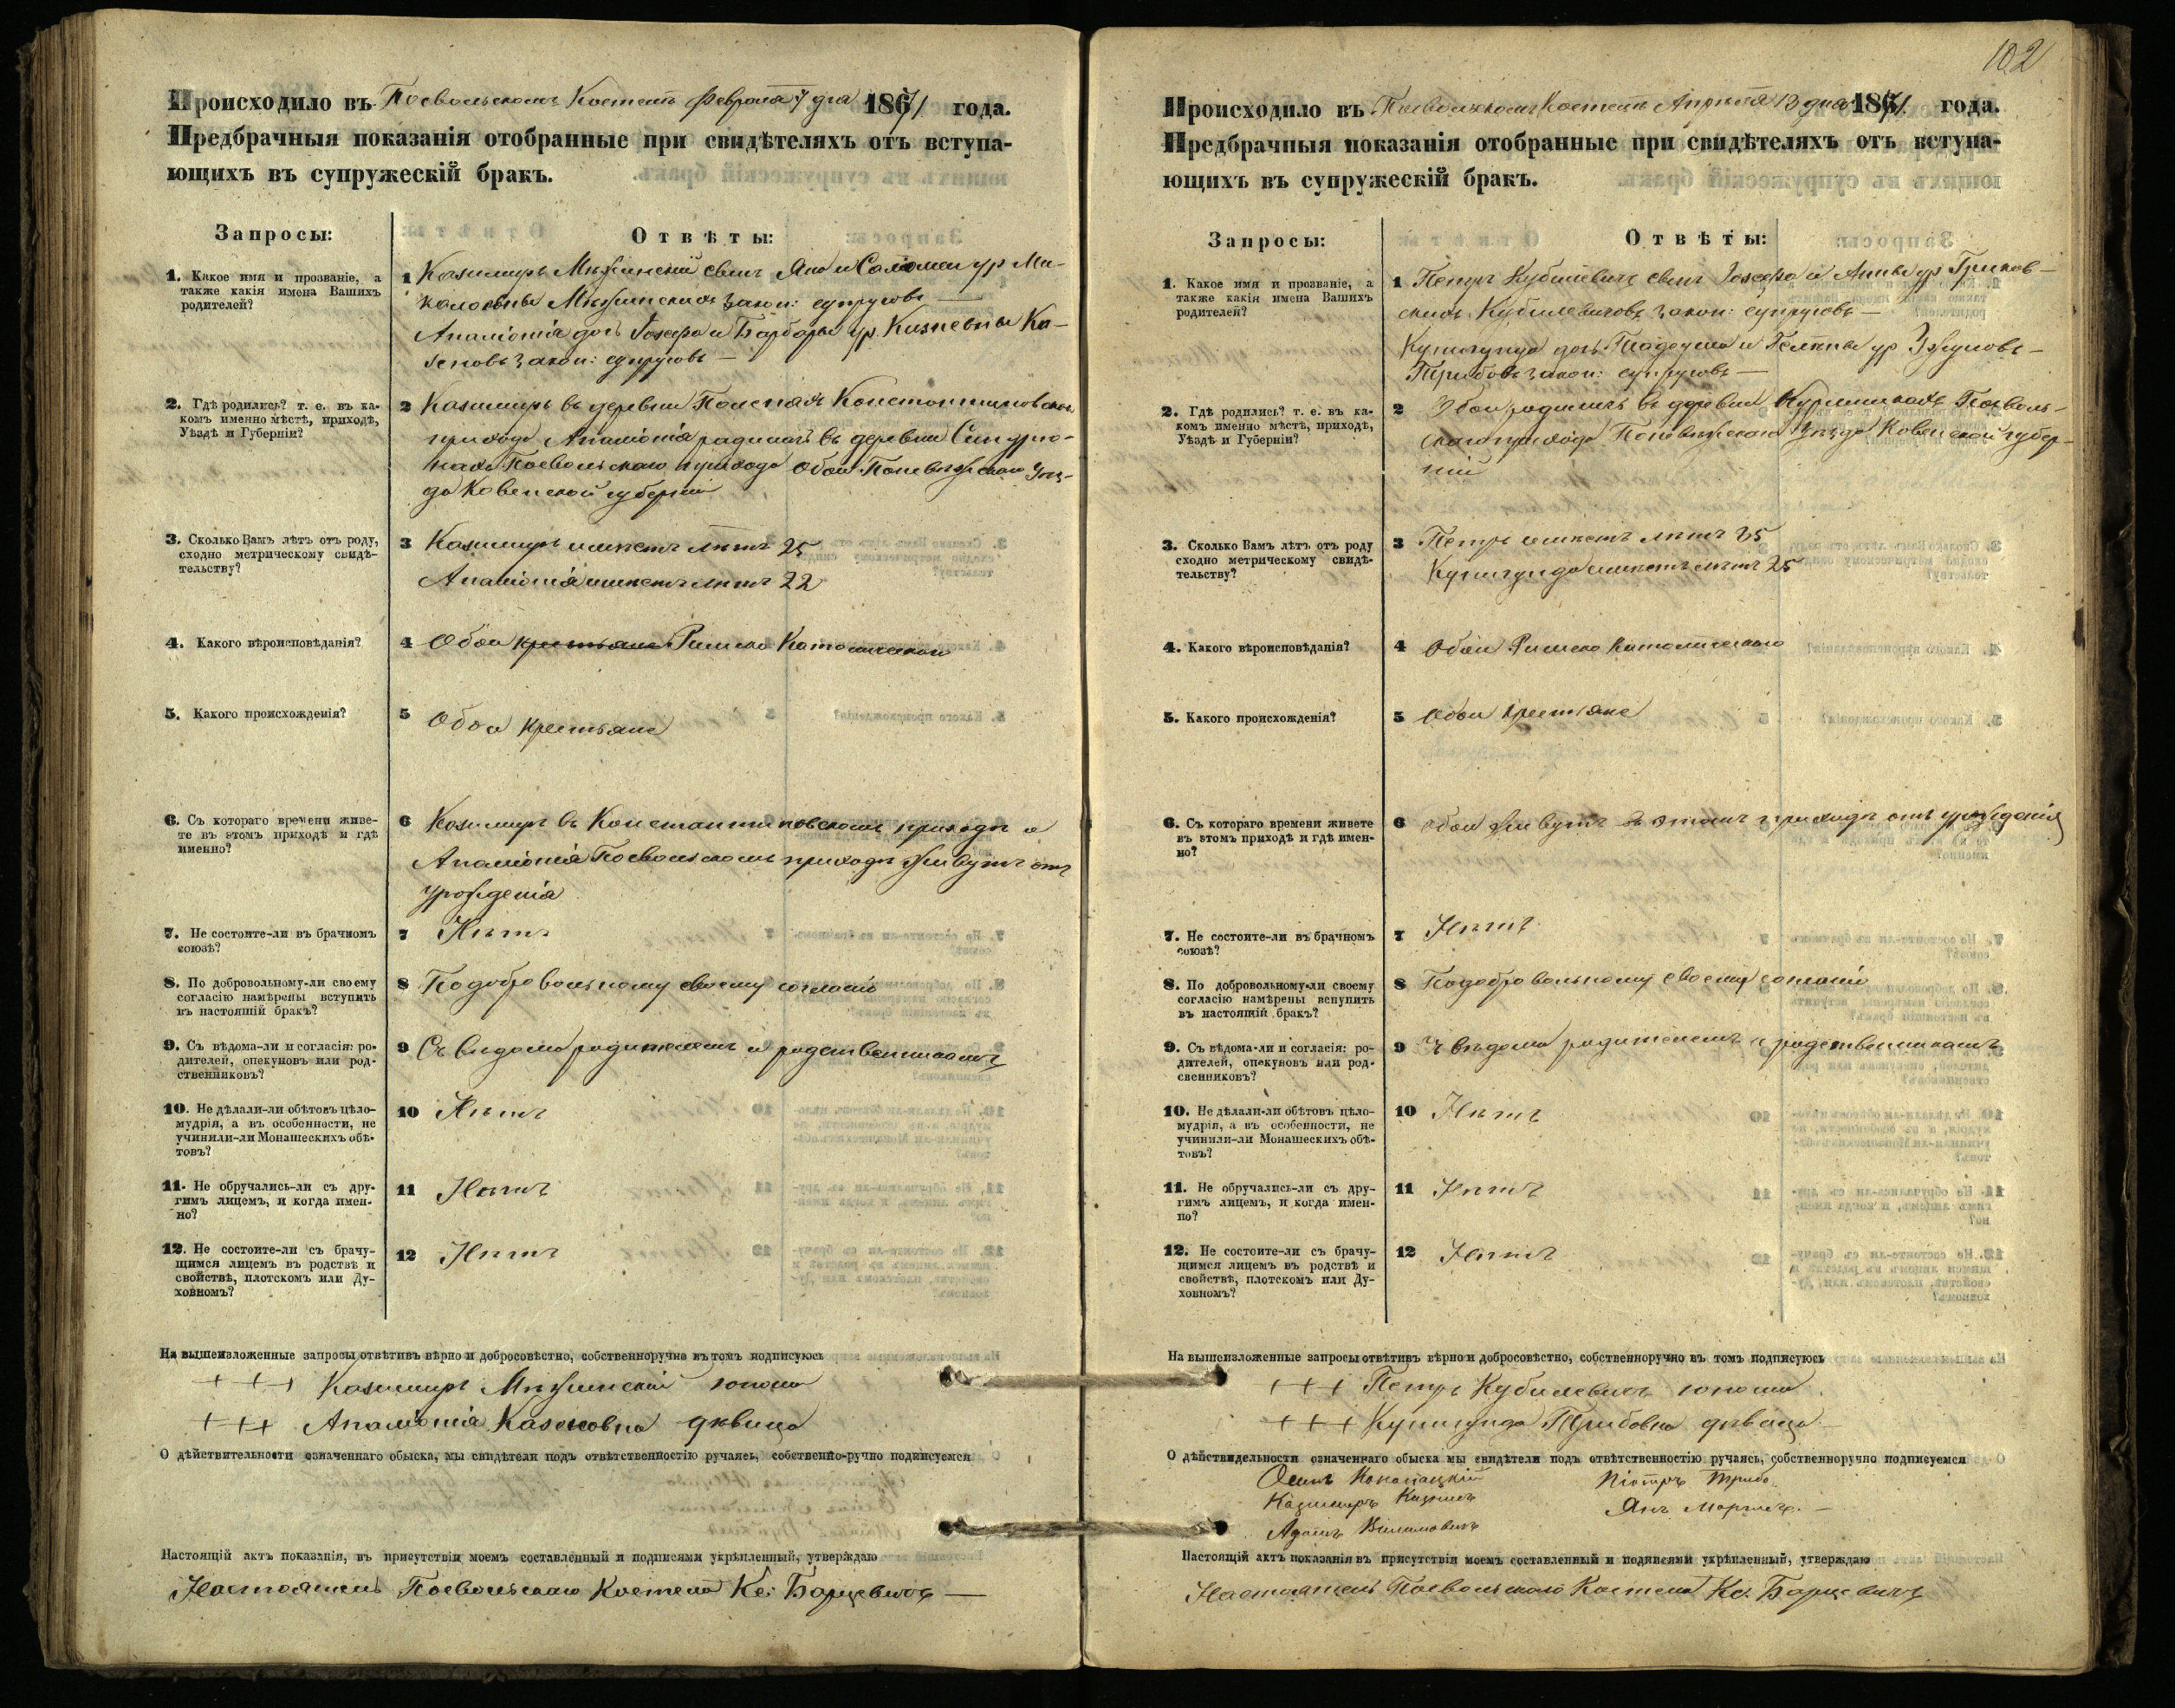 Происходило въ Посвольскомъ Костелѣ Февраля 7 дня 1871 года.
Предбрачныя показанія отобранные при свидѣтеляхъ отъ вступа-
ющихъ въ супружескій бракъ.
Запросы:
Отвѣты:
1. Какое имя и прозваніе, а
также какія имена Вашихъ
родителей?
1 Казимиръ сынъ Яна и Саломеи ур Ми-
закон: супруговъ
Аполіонія дочь Іозефа и Барбары ур.
закон: супруговъ
2. Гдѣ родились? т. е. въ ка-
комъ именно мѣстѣ, приходѣ,
Уѣздѣ и Губерніи?
2 Казимиръ въ деревни Константиновскаго
прихода Аполіонія родилась въ деревни
Посвольскаго прихода Обои Поневѣжскаго Уѣз-
да Ковенской губерніи
3. Сколько Вамъ лѣтъ отъ роду,
сходно метрическому свидѣ-
тельству?
3 Казимиръ имѣетъ лѣтъ 25
Аполіонія имѣетъ лѣтъ 22
4. Какого вѣроисповѣданія?
4 Обои крестьяне Римско Католическаго
5. Какого происхожденія?
5 Обои крестьяне
6. Съ котораго времени живе-
те въ этомъ приходѣ и гдѣ
именно?
6 Казимиръ въ Константиновскомъ приходѣ а
Аполіонія Посвольскомъ приходѣ живутъ отъ
урожденія
7. Не состоите-ли въ брачномъ
союзѣ?
7 Нѣтъ
8. По добровольному-ли своему
согласію намѣрены вступить
въ настоящій бракъ?
8 По добровольному своему согласію
9. Съ вѣдома-ли и согласія: ро-
дителей, опекуновъ или род-
ственниковъ?
9 Съ вѣдома родителемъ и родственникомъ
10. Не дѣлали-ли обѣтовъ цѣло-
мудрія, а въ особенности, не
учинили-ли Монашескихъ обѣ-
товъ?
10 Нѣтъ
11. Не обручались-ли съ дру-
гимъ лицемъ, и когда имен-
но?
11 Нѣтъ
12. Не состоите-ли съ брачу-
щимся лицемъ въ родствѣ и
свойствѣ, плотскомъ или Ду-
ховномъ?
12 Нѣтъ
На вышеизложенные запросы отвѣтивъ вѣрно и добросовѣстно, собственноручно въ томъ подписуюсь
+++ Казимиръ юноша
+++ Аполіонія дѣвица
О дѣйствительности означеннаго обыска, мы свидѣтели подъ отвѣтственностію ручаясь, собственно-ручно подписуемся
Настоящій актъ показанія, въ присутствіи моемъ составленный и подписями укрѣпленный, утверждаю
Настоятель Посвольскаго Костела Кс: Барцевичъ
102
Происходило въ Посвольскомъ Костелѣ Апрѣля 13 дня 1871 года.
Предбрачныя показанія отобранные при свидѣтеляхъ отъ вступа-
ющихъ въ супружескій бракъ.
Запросы:
Отвѣты:
1. Какое имя и прозваніе, а
также какія имена Вашихъ
родителей?
1 Петръ Кубилевичъ сынъ Іозефа и Анны ур
Кубилевичовъ закон: супруговъ
Кунигунда дочь Тадеуша и ур
закон: супруговъ
2. Гдѣ родились? т. е. въ ка-
комъ именно мѣстѣ, приходѣ,
Уѣздѣ и Губерніи?
2 Обои родились въ деревни Посволь-
скаго прихода Поневѣжскаго Уѣзда Ковенской губер-
ніи
3. Сколько Вамъ лѣтъ отъ роду
сходно метрическому свидѣ-
тельству?
3 Петръ имѣетъ лѣтъ 35
Кунигунда имѣетъ лѣтъ 25
4. Какого вѣроисповѣданія?
4 Обои Римско Католическаго
5. Какого происхожденія?
5 Обои крестьяне
6. Съ котораго времени живете
въ этомъ приходѣ и гдѣ имен-
но?
6 Обои живутъ въ этомъ приходѣ отъ урожденія
7. Не состоите-ли въ брачномъ
союзѣ?
7 Нѣтъ
8. По добровольному-ли своему
согласію намѣрены вступить
въ настоящій бракъ?
8 По добровольному своему согласію
9. Съ вѣдома-ли и согласія: ро-
дителей, опекуновъ или род-
свенниковъ?
9 вѣдома родителемъ и родственникамъ
10. Не дѣлали-ли обѣтовъ цѣло-
мудрія, а въ особенности, не
учинили-ли Монашескихъ обѣ-
товъ?
10 Нѣтъ
11. Не обручались-ли съ дру-
гимъ лицемъ, и когда имен-
но?
11 Нѣтъ
12. Не состоите-ли съ брачу-
щимся лицемъ въ родствѣ и
свойствѣ, плотскомъ или Ду-
ховномъ?
12 Нѣтъ
На вышеизложенные запросы отвѣтивъ вѣрно и добросовѣстно, собственноручно въ томъ подписуюсь
+++ Петръ Кубилевичъ юноша
+++ Кунигунда дѣвица
О дѣйствидельности означеннаго обыска мы свидѣтели подъ отвѣтственностію ручаясь, собственноручно подписуемся
Казимиръ
Адамъ
Янъ
Настоящій актъ показанія въ присутствіи моемъ составленный и подписями укрѣпленный, утверждаю
Настоятель Посвольскаго Костела Кс. Барцевичъ